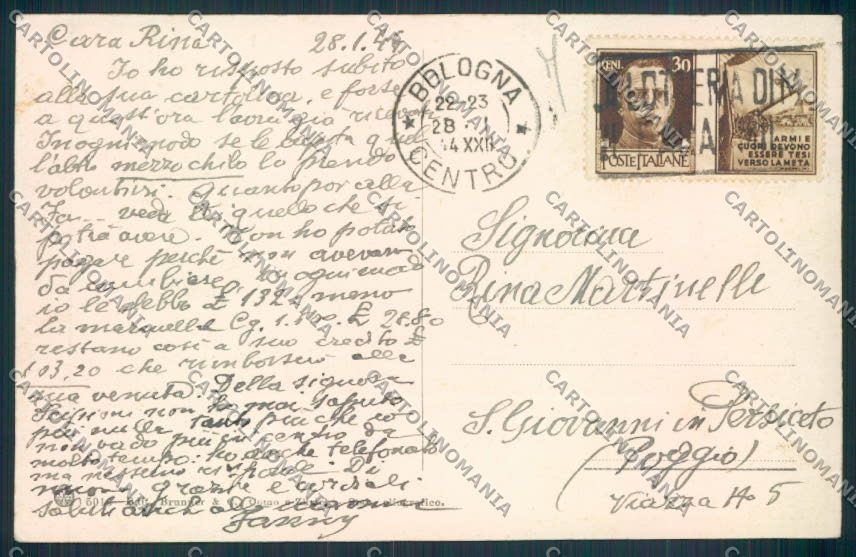 Cara Rina 28.1.44
Io ho risposto subito
alla sua cartolina, e forse
a quest'ora l'avrà già
In ogni modo se le
l'altro mezzo chilo lo prendo
volentieri. Quanto poi alla
veda di quello che si
potrà avere. Non ho potuto
pagare perchè non avevano
da cambiare, in ogni modo
io le debbo £ 132 meno
la Cg. £ 28.80
restano così a suo credito £
103,20 che rimborserò alla
sua venuta. Della signora
non ho mai saputo
più nulla tanto più che io
non vado più in centro da
molto tempo. ho anche telefonato
ma nessuno risponde. Di
nuovo grazie e cordiali
saluti anche a
Fanny
BOLOGNA
22-23
28 . I
44 XXII
CENTRO
CENT. 30
POSTE ITALIANE
LOTTERIA DI
ARMI E
CUORI DEVONO
ESSERE TESI
VERSO LA META
Signorina
Rina Martinelli
S. Giovanni in Persiceto
(Poggio)
Via 5
Edit. Brunner & C. Como
CARTOLINOMANIA